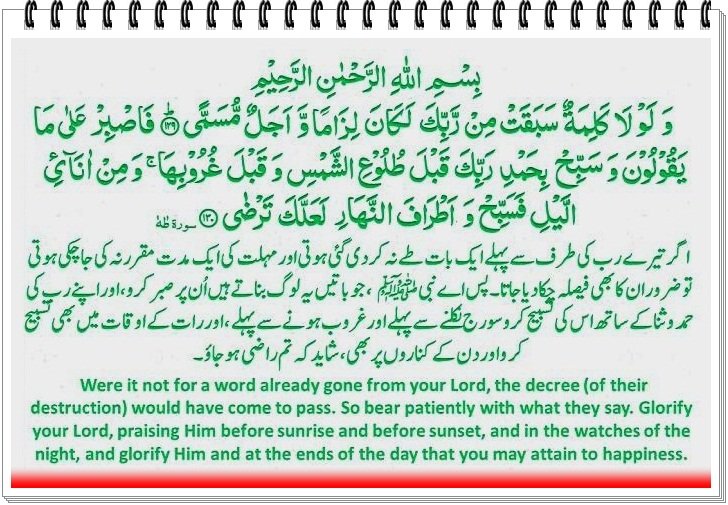 بِسْمِ اللهِ الرَّحْمٰنِ الرَّحِيْمِ
وَ لَوْ لَا كَلِمَةٌ سَبَقَتْ مِنْ رَّبِّكَ لَكَانَ لِزَامًا وَّ اَجَلٌ مُّسَمًّى ﴿ؕ۱۲۹﴾ فَاصْبِرْ عَلٰى مَا
يَقُوْلُوْنَ وَ سَبِّحْ بِحَمْدِ رَبِّكَ قَبْلَ طُلُوْعِ الشَّمْسِ وَ قَبْلَ غُرُوْبِهَا ۚ وَ مِنْ اٰنَآئِ
الَّيْلِ فَسَبِّحْ وَ اَطْرَافَ النَّهَارِ لَعَلَّكَ تَرْضٰى ﴿۱۳۰﴾ سورۃ طٰهٰ
اگر تیرے رب کی طرف سے پہلے ایک بات طے نہ کر دی گئی ہوتی اور مہلت کی ایک مدت مقرر نہ کی جا چکی ہوتی
تو ضرور ان کا بھی فیصلہ چکا دیا جاتا۔ پس اے نبی ﷺ ، جو باتیں یہ لوگ بناتے ہیں اُن پر صبر کرو، اور اپنے رب کی
حمد و ثنا کے ساتھ اس کی تسبیح کرو سورج نکلنے سے پہلے اور غروب ہونے سے پہلے، اور رات کے اوقات میں بھی تسبیح
کرو اور دن کے کناروں پر بھی، شاید کہ تم راضی ہو جاؤ۔
Were it not for a word already gone from your Lord, the decree (of their
destruction) would have come to pass. So bear patiently with what they say. Glorify
your Lord, praising Him before sunrise and before sunset, and in the watches of the
night, and glorify Him and at the ends of the day that you may attain to happiness.